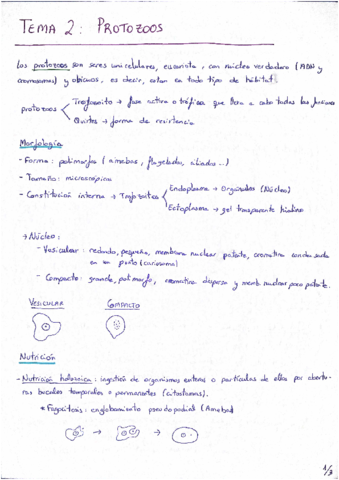 TEMA 2: PROTOZOOS
Los protozoos son seres unicelulares, eucariota, con núcleo verdadero (ADN y
cromosomas) y obicuos, es decir, estan en todo tipo de hábitat.
protozoos
Trofozoito → fase activa o trófica que lleva a cabo todas las funciones
Quistes → forma de resistencia
Morfología
- Forma: polimorfos (amebas, flagelados, ciliados...)
- Tamaño: microscópico
- Constitución interna → Trofozoitos
Endoplasma → Orgánulos (Núcleo)
Ectoplasma → gel transparente hialino
→ Núcleo:
- Vesicular: redondo, pequeño, membrana nuclear patente, cromatina condensada
en un punto (cariosoma)
- Compacto: grande, polimorfo, cromatina dispersa y memb. nuclear poco patente.
VESICULAR
COMPACTO
Nutrición
- Nutrición holozoica: ingestión de organismos enteros o partículas de ellos por abertu-
ras bucales temporales o permanentes (citostomas).
* Fagocitosis: englobamiento pseudopodial (Amebas)
→ →
1/3